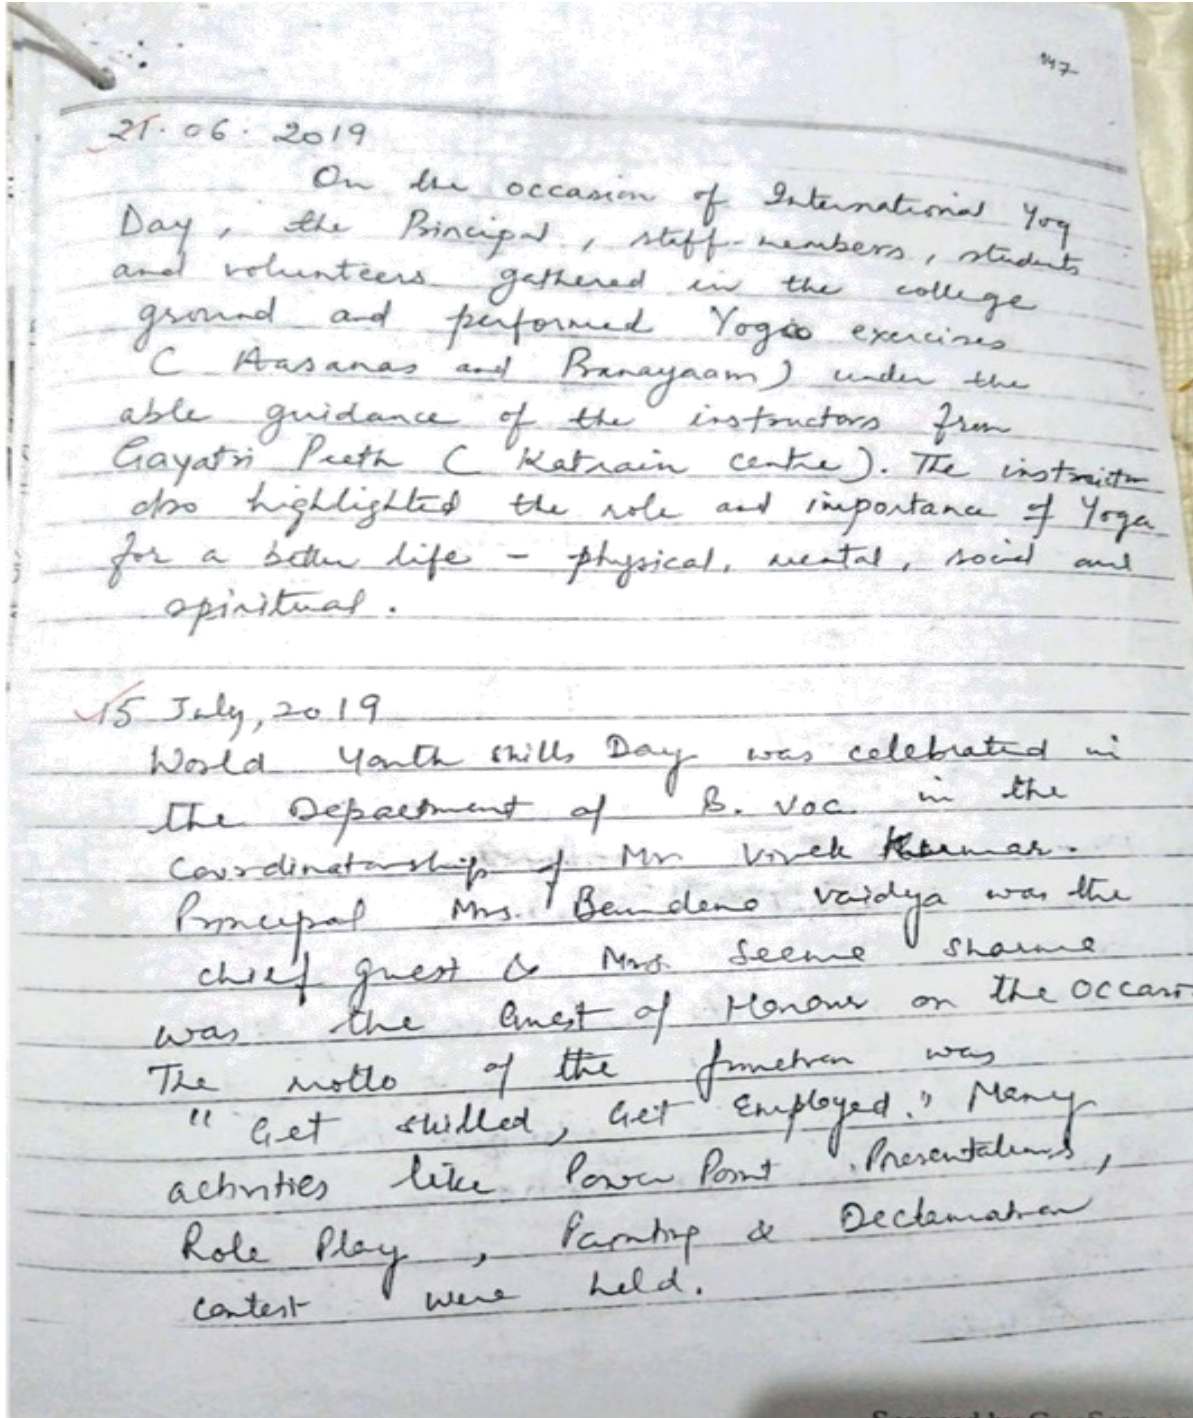 147
21.06.2019
On the occasion of International Yog
Day, the Principal, staff-members, students
and volunteers gathered in the college
ground and performed Yoga exercises
( Aasanas and Pranayaam) under the
able guidance of the instructors from
Gayatri Peeth ( Katrain centre). The instructor
also highlighted the role and importance of Yoga
for a better life - physical, mental, social and
spiritual.
15 July, 2019
World Youth Skills Day was celebrated in
the Department of B. Voc. in the
Coordinatorship of Mr Vivek Kumar.
Principal Mrs. Vaidya was the
chief guest & Mrs. Seema Sharma
was the Guest of Honour on the occasi
The motto of the function was
"Get skilled, Get Employed." Many
activities like Power Point Presentations,
Role Play, Painting & Declamation
contest were held.